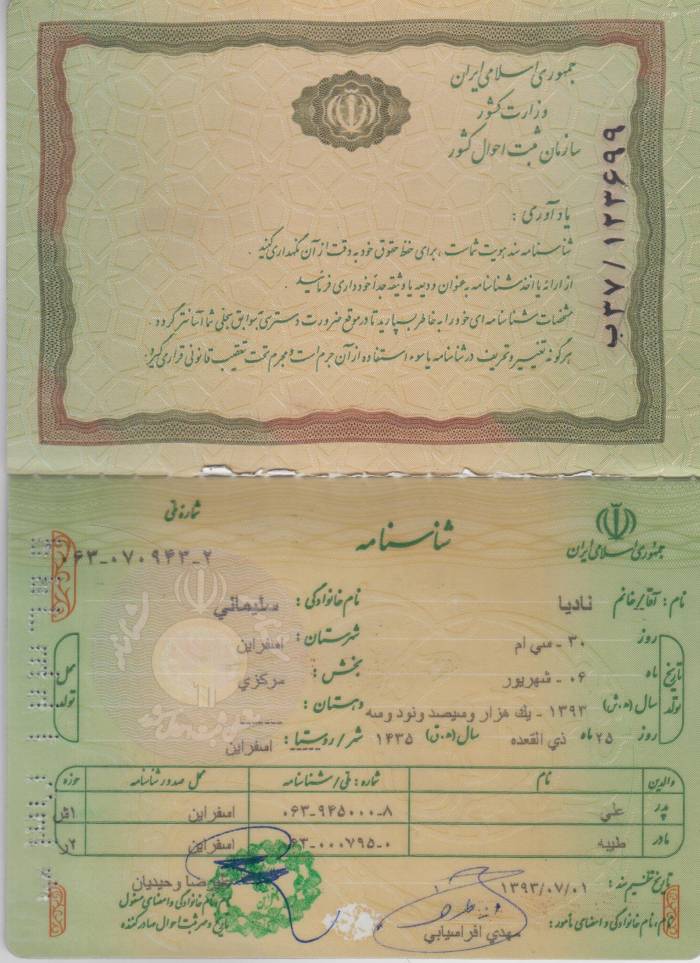 جمهوری اسلامی ایران
وزارت کشور
سازمان ثبت احوال کشور
ب۳۷/۱۲۳۶۹۹
یادآوری :
شناسنامه سند هویت شماست ، برای حفظ حقوق خود به دقت از آن نگهداری کنید .
از ارائه یا اخذ شناسنامه به عنوان ودیعه یا وثیقه جداً خودداری فرمائید .
مشخصات شناسنامه ای خود را به خاطر بسپارید تا در موقع ضرورت دسترسی به سوابق سجلی شما آسانتر گردد .
هرگونه تغییر و تحریف در شناسنامه یا سوء استفاده از آن جرم است و مجرم تحت تعقیب قانونی قرار می گیرد .
جمهوری اسلامی ایران
شناسنامه
شماره ملی
۰۶۳-۰۷۰۹۴۳-۲
نام : آقا/خانم نادیا نام خانوادگی : سلیمانی
تاریخ تولد
روز ۳۰ - سی ام شهرستان : اسفراین
ماه ۰۶ - شهریور بخش : مرکزی
سال (ه.ش) ۱۳۹۳ - یك هزار وسیصد ونود وسه دهستان : -----
روز ۲۵ ماه ذي القعده سال (ه.ق) ۱۴۳۵ شهر/روستا : اسفراین
محل تولد
والدین نام شماره : ملی/شناسنامه محل صدور شناسنامه حوزه
پدر علي ۰۶۳-۹۴۵۰۰۰-۸ اسفراین ۱ش
مادر طیبه ۰۶۳-۰۰۰۷۹۵-۰ اسفراین ۲ر
تاریخ تنظیم سند : ۱۳۹۳/۰۷/۰۱
نام ، نام خانوادگی و امضای مأمور : مهدي افراسیابي
علیرضا وحیدیان
نام ، نام خانوادگی و امضای مسئول
تاریخ و مهر ثبت احوال صادرکننده